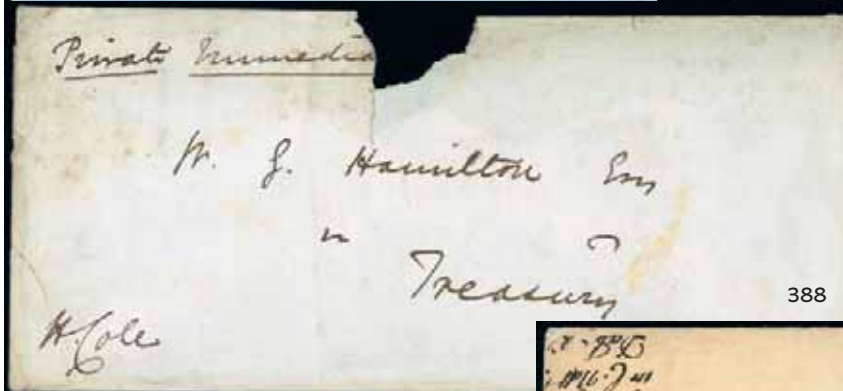 Private Immedia
W. G. Hamilton Esq
Treasury
H Cole
388